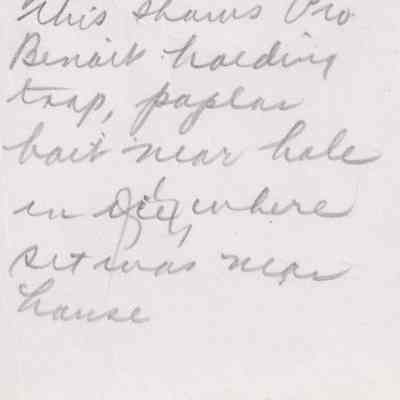 This shows Pro
Benoit holding
trap, poplar
bait near hole
in ice, where
set was near
house